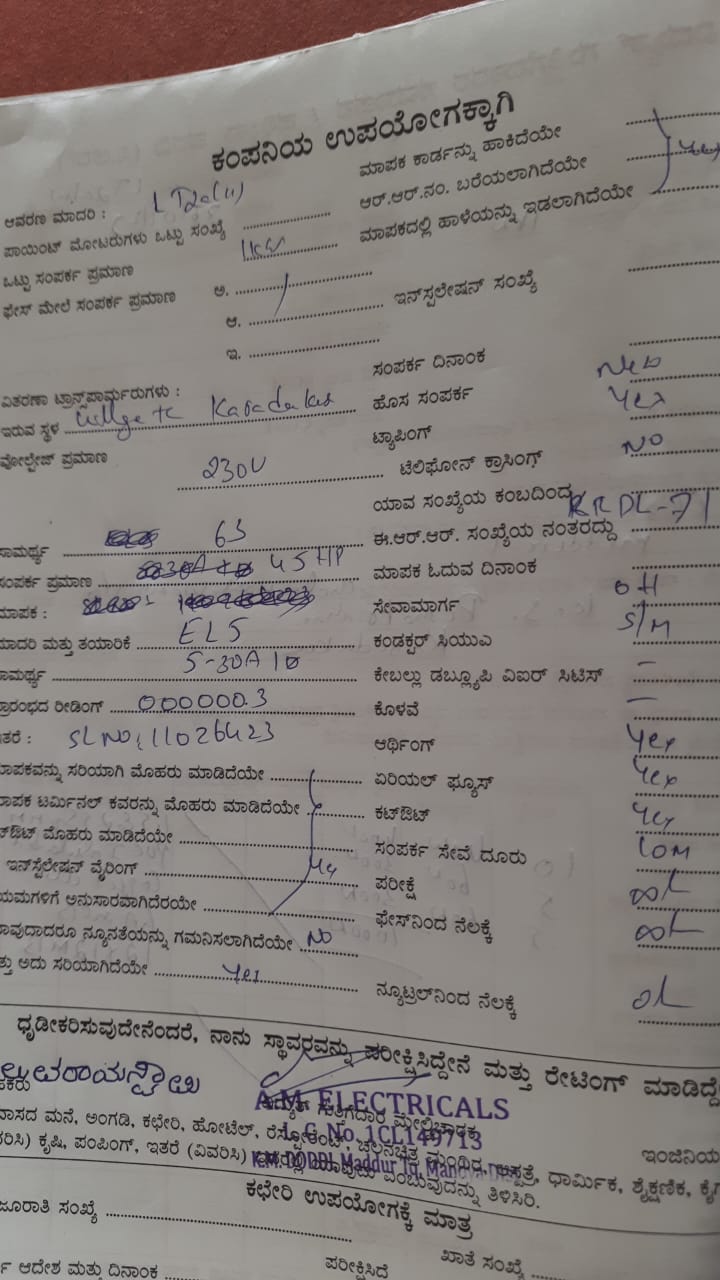 ಕಂಪನಿಯ ಉಪಯೋಗಕ್ಕಾಗಿ
ಆವರಣ ಮಾದರಿ :
ಪಾಯಿಂಟ್ ಮೋಟರುಗಳು ಒಟ್ಟು ಸಂಖ್ಯೆ
ಒಟ್ಟು ಸಂಪರ್ಕ ಪ್ರಮಾಣ
ಫೇಸ್ ಮೇಲೆ ಸಂಪರ್ಕ ಪ್ರಮಾಣ ಅ.
ಆ.
ಇ.
ವಿತರಣಾ ಟ್ರಾನ್ಸ್‌ಪಾರ್ಮರುಗಳು :
ಇರುವ ಸ್ಥಳ
ವೋಲ್ಟೇಜ್ ಪ್ರಮಾಣ 230V
ಸಾಮರ್ಥ್ಯ 63
ಸಂಪರ್ಕ ಪ್ರಮಾಣ 45HP
ಮಾಪಕ :
ಮಾದರಿ ಮತ್ತು ತಯಾರಿಕೆ ELS
ಸಾಮರ್ಥ್ಯ 5-30A
ಪ್ರಾರಂಭದ ರೀಡಿಂಗ್ 000000.3
ಇತರೆ : SLNO: 11026423
ಮಾಪಕವನ್ನು ಸರಿಯಾಗಿ ಮೊಹರು ಮಾಡಿದೆಯೇ
ಮಾಪಕ ಟರ್ಮಿನಲ್ ಕವರನ್ನು ಮೊಹರು ಮಾಡಿದೆಯೇ
ಕಟ್‌ಔಟ್ ಮೊಹರು ಮಾಡಿದೆಯೇ
ಇನ್‌ಸ್ಟಲೇಷನ್ ವೈರಿಂಗ್
ನಿಯಮಗಳಿಗೆ ಅನುಸಾರವಾಗಿದೆರಯೇ
ಯಾವುದಾದರೂ ನ್ಯೂನತೆಯನ್ನು ಗಮನಿಸಲಾಗಿದೆಯೇ No
ಮತ್ತು ಅದು ಸರಿಯಾಗಿದೆಯೇ Yes
ಮಾಪಕ ಕಾರ್ಡನ್ನು ಹಾಕಿದೆಯೇ
ಆರ್.ಆರ್.ನಂ. ಬರೆಯಲಾಗಿದೆಯೇ Yes
ಮಾಪಕದಲ್ಲಿ ಹಾಳೆಯನ್ನು ಇಡಲಾಗಿದೆಯೇ
ಇನ್‌ಸ್ಪಲೇಷನ್ ಸಂಖ್ಯೆ
ಸಂಪರ್ಕ ದಿನಾಂಕ
ಹೊಸ ಸಂಪರ್ಕ New
ಟ್ಯಾಪಿಂಗ್ Yes
ಟೆಲಿಫೋನ್ ಕ್ರಾಸಿಂಗ್ NO
ಯಾವ ಸಂಖ್ಯೆಯ ಕಂಬದಿಂದ
ಈ.ಆರ್.ಆರ್. ಸಂಖ್ಯೆಯ ನಂತರದ್ದು KRDL-71
ಮಾಪಕ ಓದುವ ದಿನಾಂಕ
ಸೇವಾಮಾರ್ಗ OH
ಕಂಡಕ್ಟರ್ ಸಿಯುಎ S/M
ಕೇಬಲ್ಲು ಡಬ್ಲ್ಯೂಪಿ ವಿಐರ್ ಸಿಟಿಸ್ –
ಕೊಳವೆ –
ಆರ್ಥಿಂಗ್ Yes
ಏರಿಯಲ್ ಫ್ಯೂಸ್ Yes
ಕಟ್‌ಔಟ್ Yes
ಸಂಪರ್ಕ ಸೇವೆ ದೂರು 10M
ಪರೀಕ್ಷೆ
ಫೇಸ್‌ನಿಂದ ನೆಲಕ್ಕೆ
ನ್ಯೂಟ್ರಲ್‌ನಿಂದ ನೆಲಕ್ಕೆ
ಧೃಡೀಕರಿಸುವುದೇನೆಂದರೆ, ನಾನು ಸ್ಥಾವರವನ್ನು ಪರೀಕ್ಷಿಸಿದ್ದೇನೆ ಮತ್ತು ರೇಟಿಂಗ್ ಮಾಡಿದ್ದೇ
A.M. ELECTRICALS
L.G.No. 1CL149713
K.M. DODDI, Maddur Tq, Mandya
ವಾಸದ ಮನೆ, ಅಂಗಡಿ, ಕಛೇರಿ, ಹೋಟೆಲ್, ರೆಸ್ಟೋರೆಂಟ್, ಚಲನಚಿತ್ರ ಮಂದಿರ, ಆಸ್ಪತ್ರೆ, ಧಾರ್ಮಿಕ, ಶೈಕ್ಷಣಿಕ,
ಕೃಷಿ, ಪಂಪಿಂಗ್, ಇತರೆ (ವಿವರಿಸಿ) ಎಂಬುದನ್ನು ತಿಳಿಸಿರಿ.
ಕಛೇರಿ ಉಪಯೋಗಕ್ಕೆ ಮಾತ್ರ
ಜೂರಾತಿ ಸಂಖ್ಯೆ
ಆದೇಶ ಮತ್ತು ದಿನಾಂಕ ಪರೀಕ್ಷಿಸಿದೆ ಖಾತೆ ಸಂಖ್ಯೆ